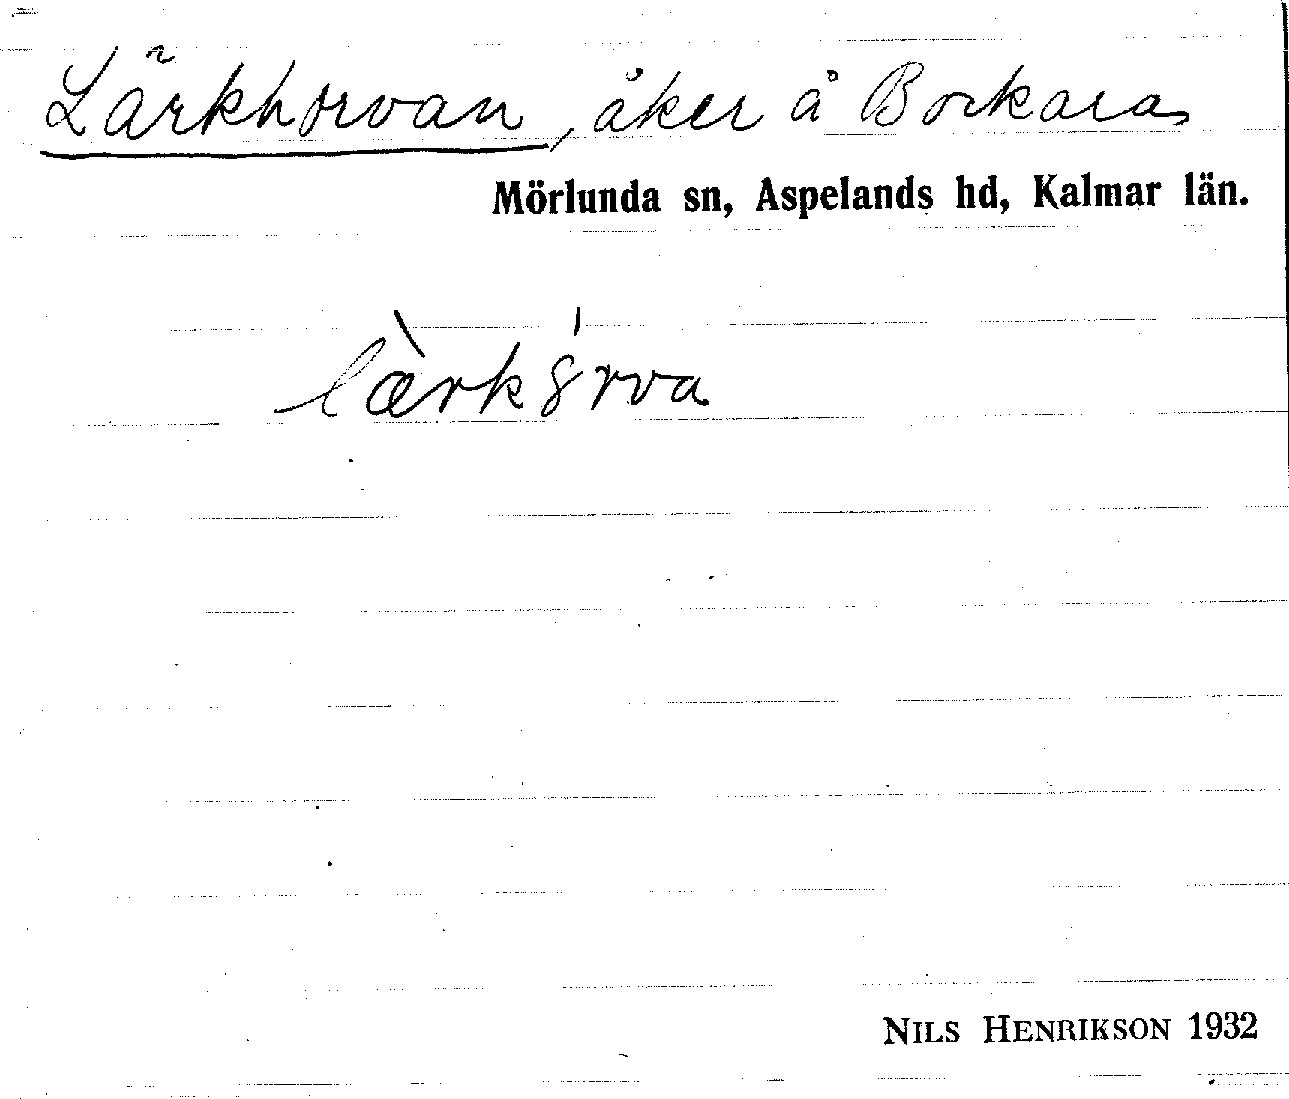 Lärkhorvan, åker å Bockara
Mörlunda sn, Aspelands hd, Kalmar län.
læ̀rkȣ́rva
NILS HENRIKSON 1932